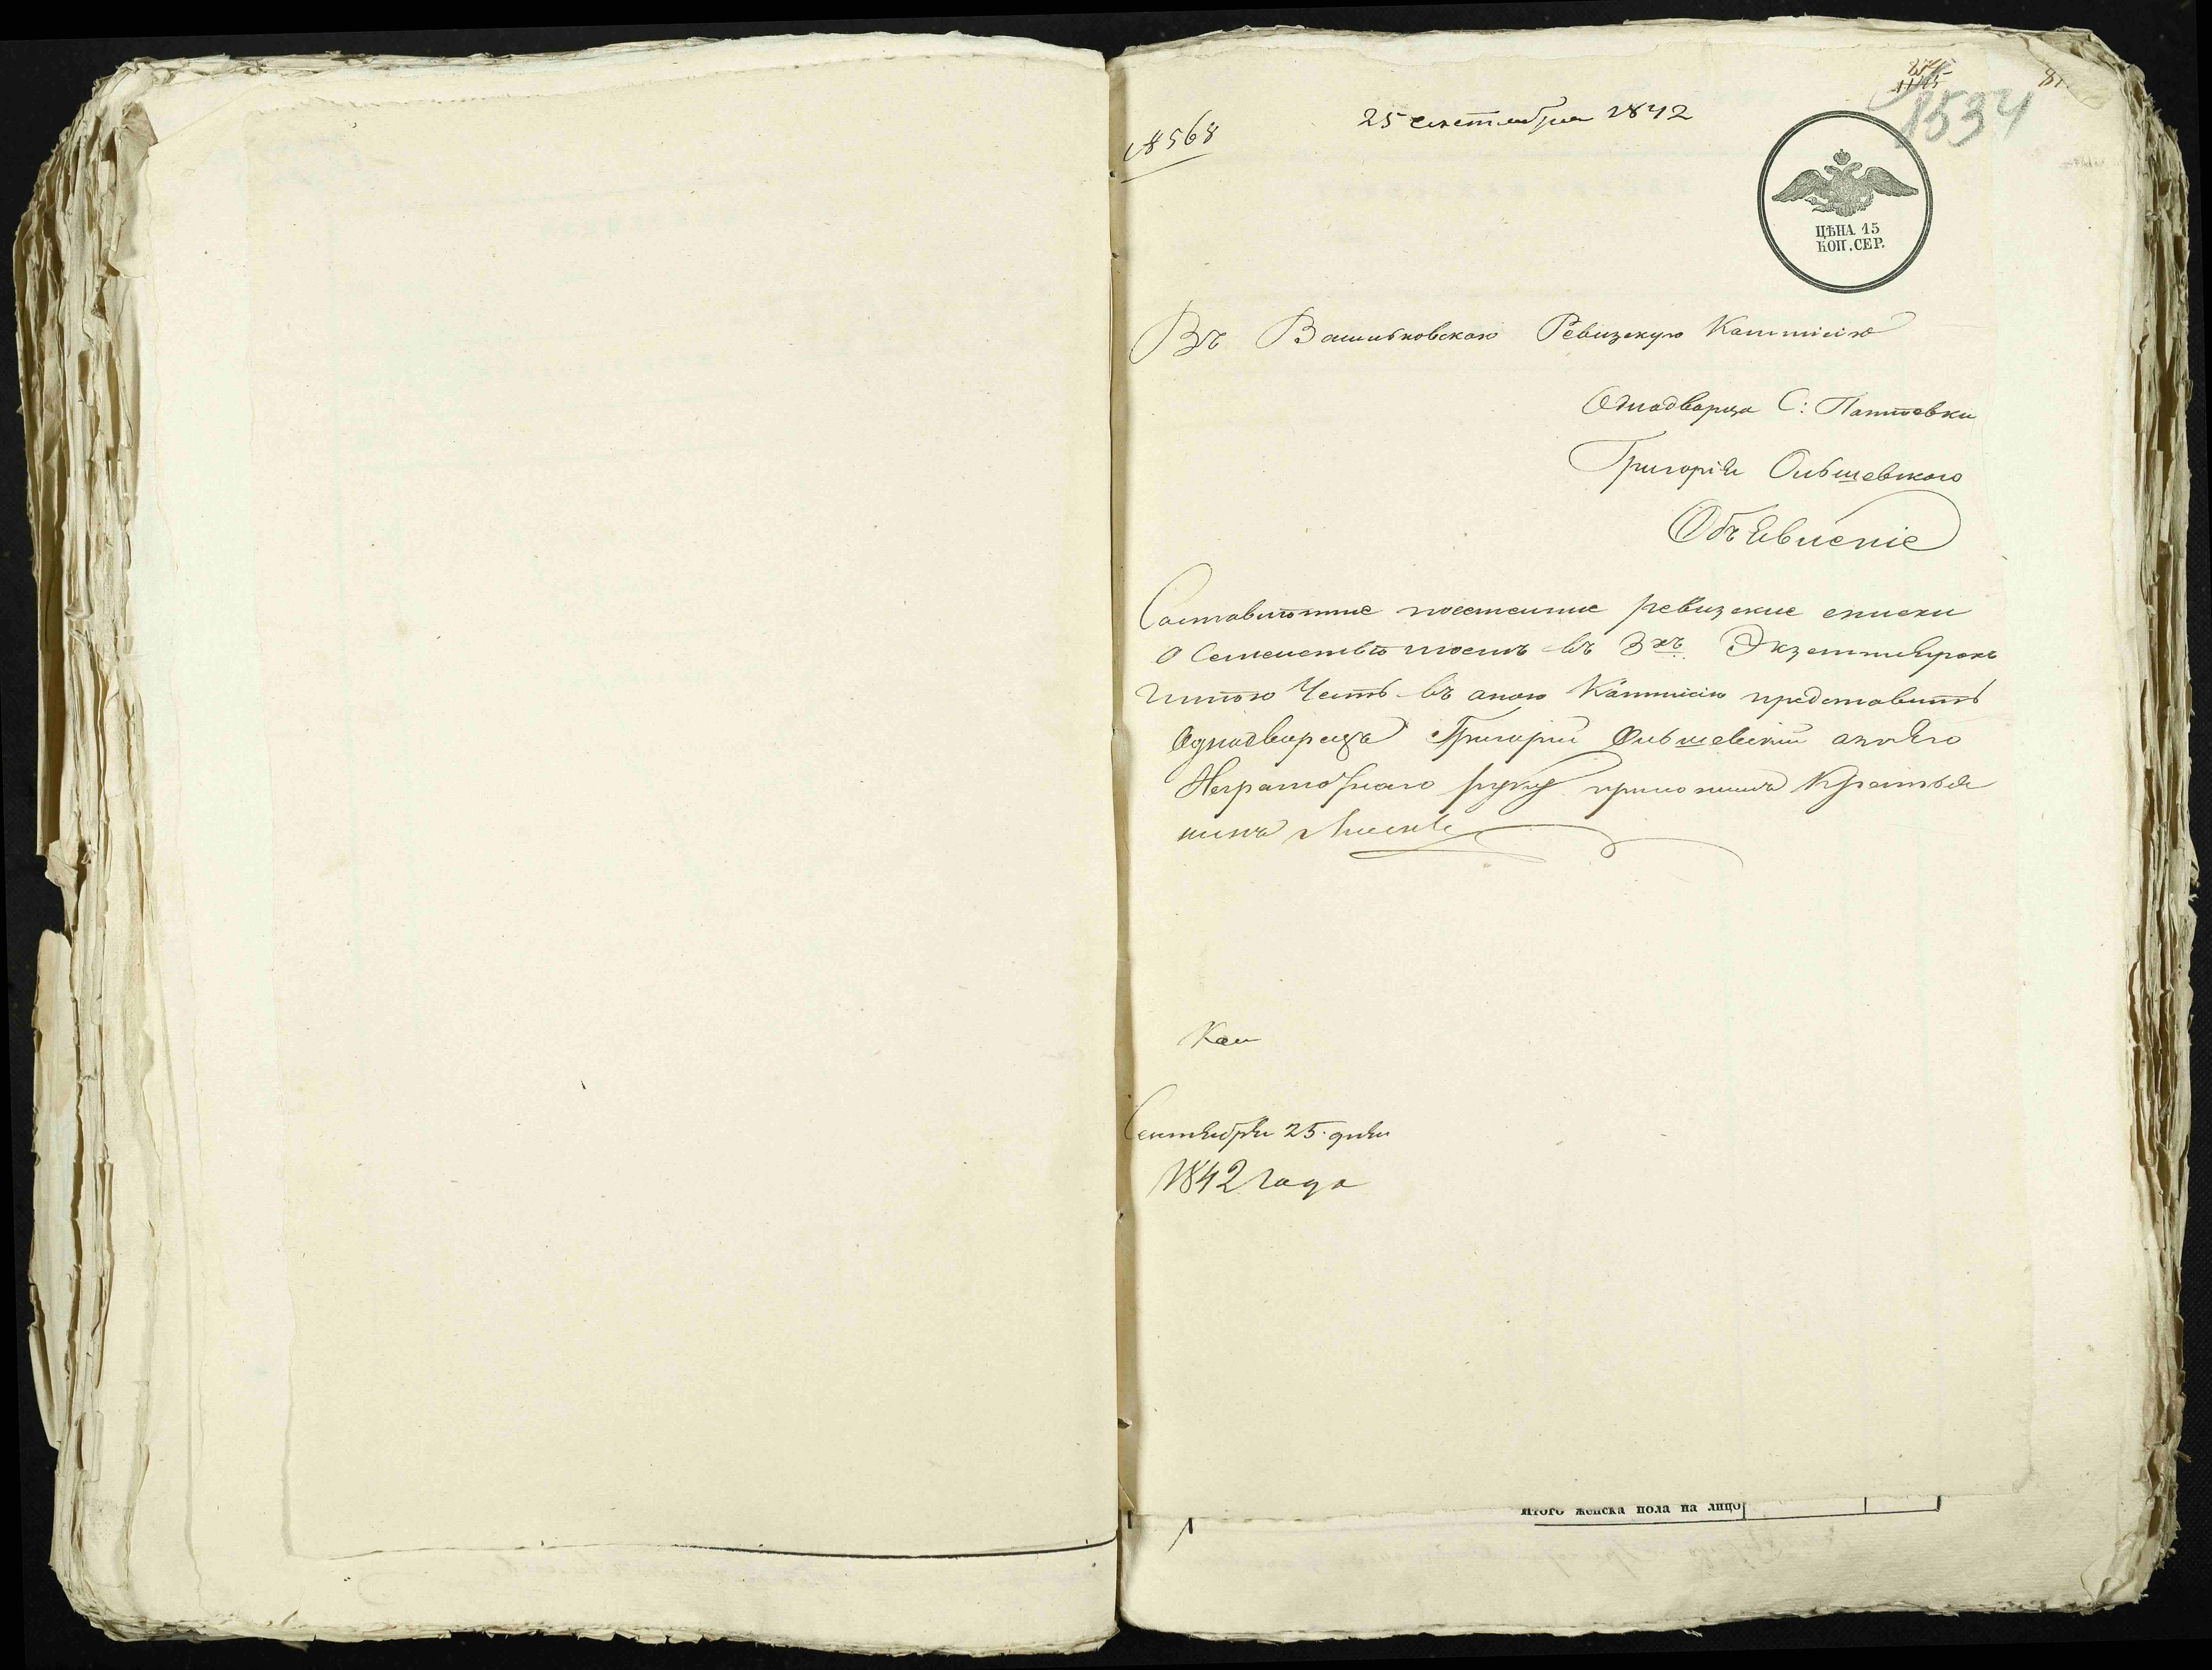 25 сентября 1842
№ 568
81
1534
ЦѢНА 15
КОП. СЕР.
Въ Васильковскою Ревизскую Каммісію
Однодворца С: Пашовки
Григорія Ольшевского
Объявленіе
Составлѣнние ревизские списки
О Семействѣ моемъ въ 3хъ Экземплярахъ
имѣю Честь въ оною Каммисию представить
Однодворецъ Григорий Ольшевский а за Его
Неграмотного руку приложилъ
Сентября 25. дня
1842 года
Итого женска пола на лицо